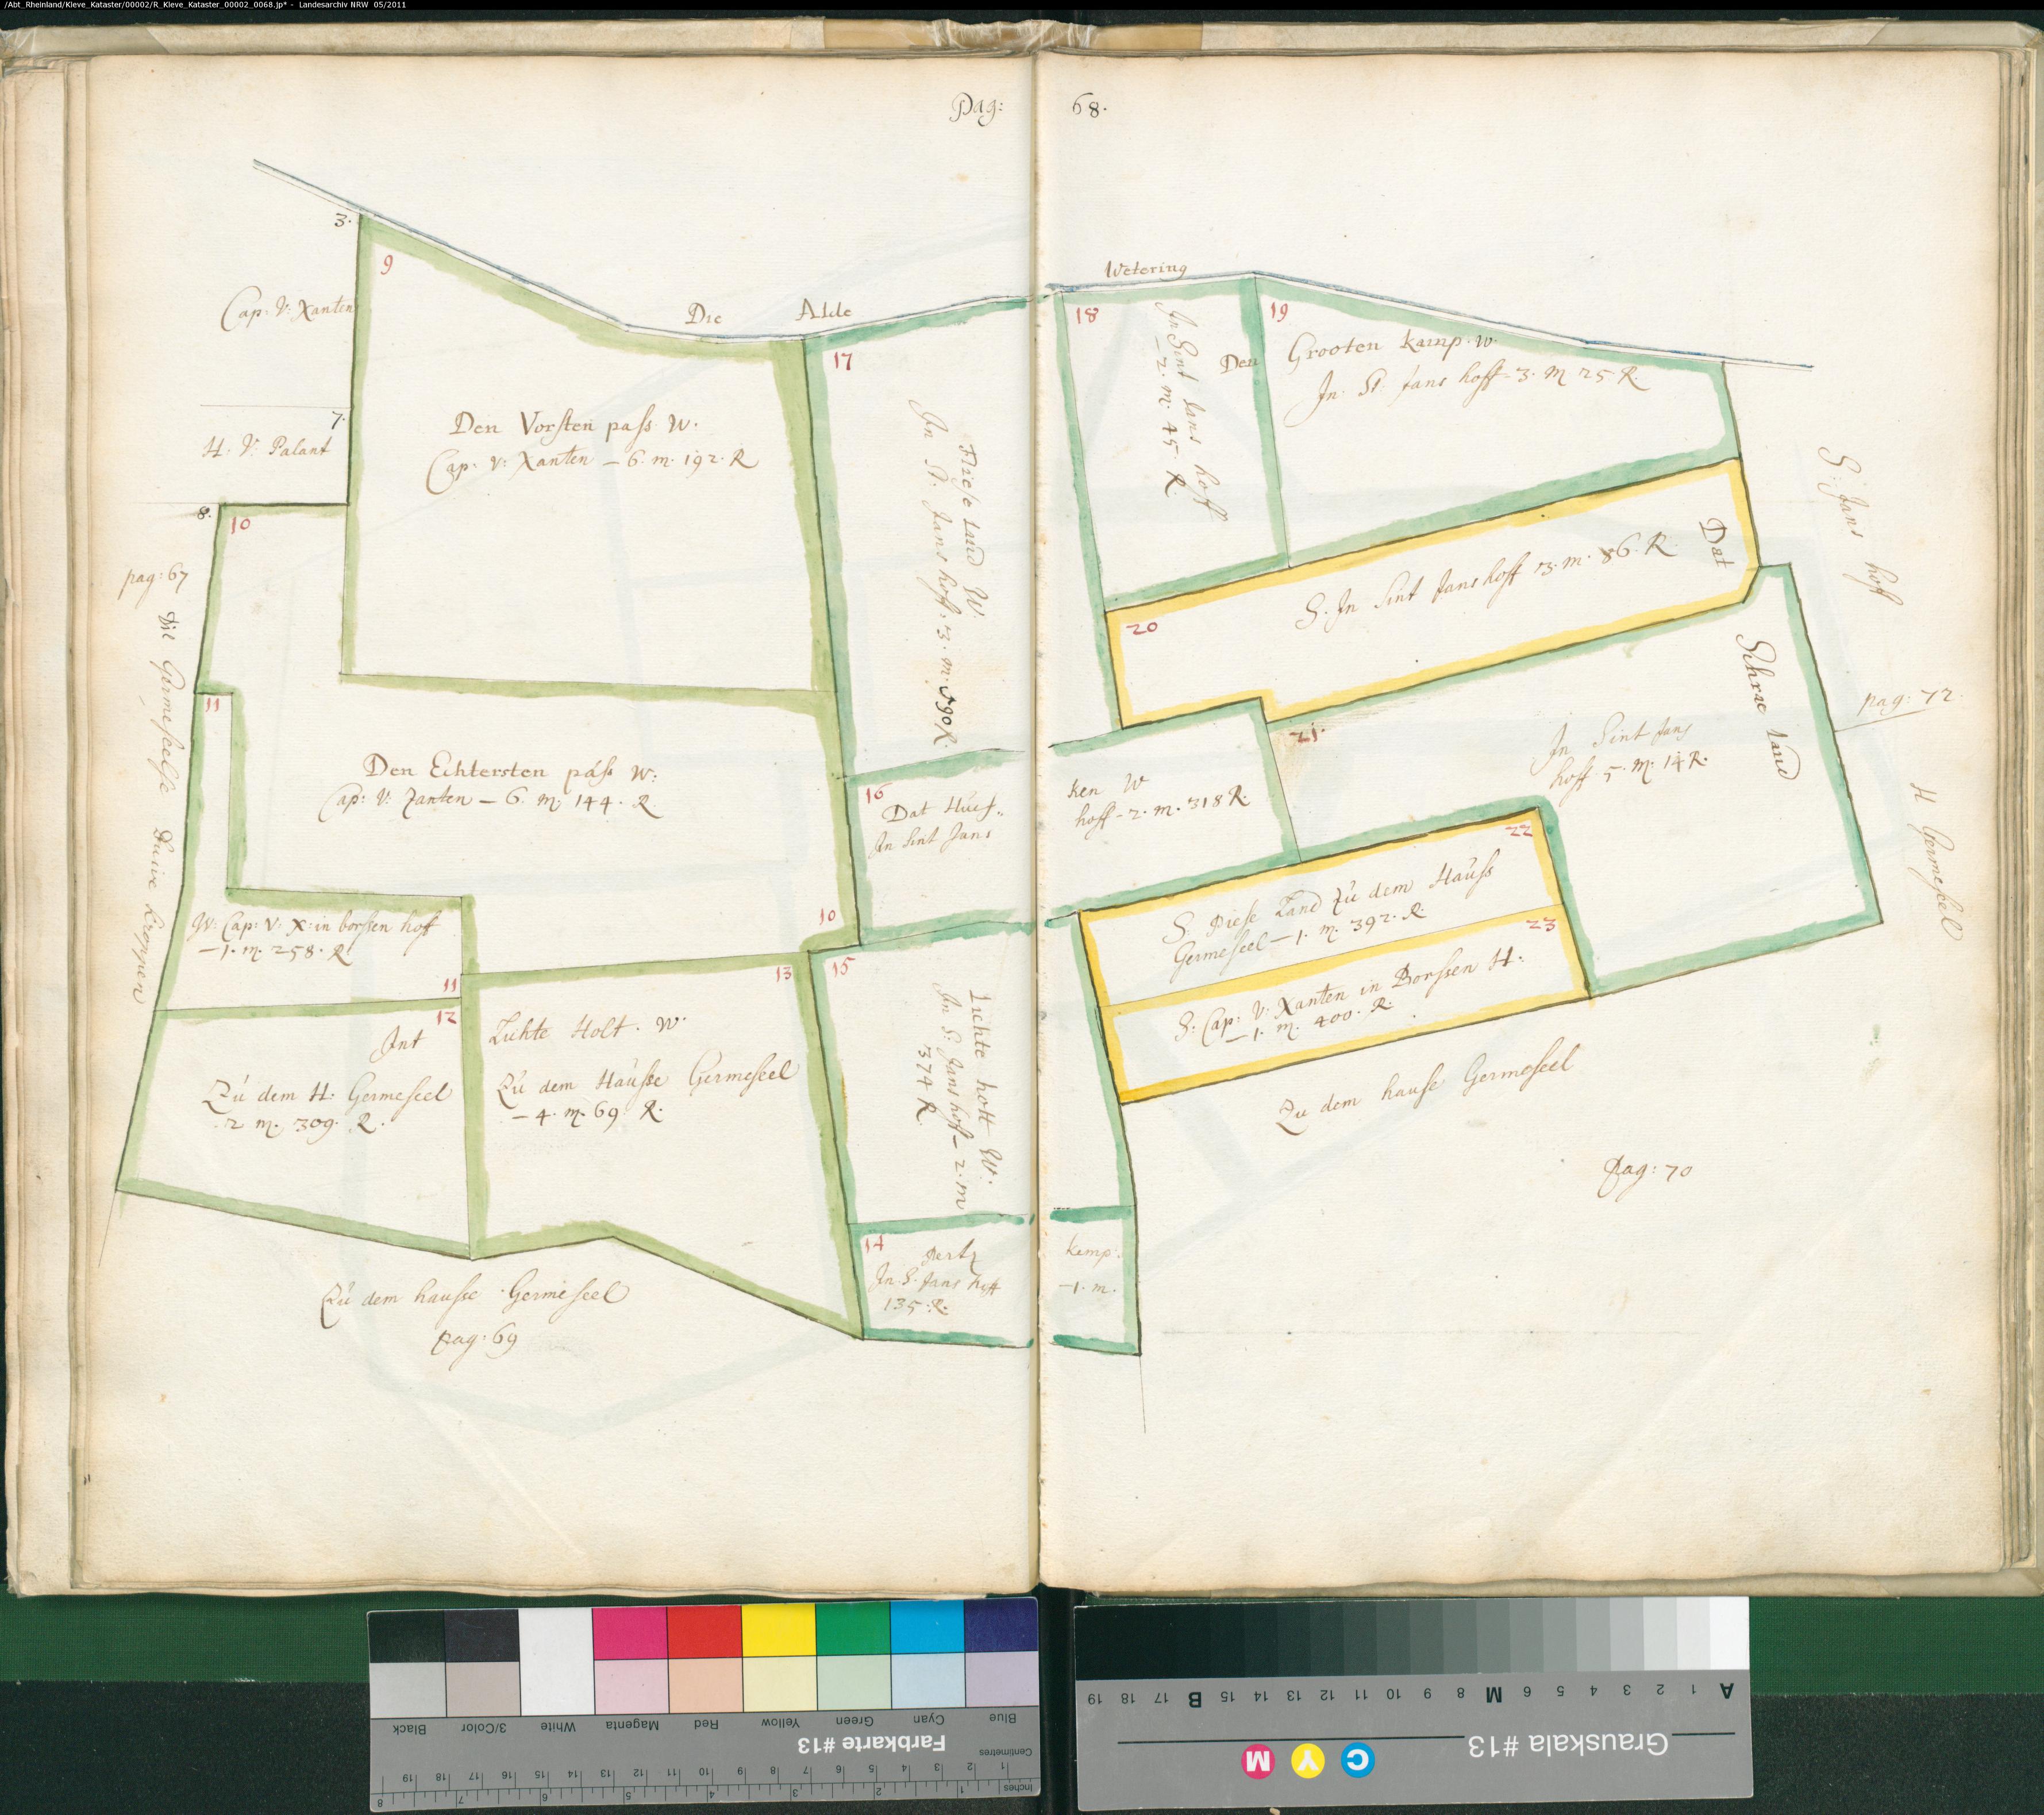 /Abt_Rheinland/Kleve_Kataster/00002/R_Kleve_Kataster_00002_0068.jp* - Landesarchiv NRW 05/2011
Pag: 68.
3.
9
Cap: V: Xanten
Die Alde Wetering
7.
H. V: Palant
8.
10
Den Vorsten pass W.
Cap: V: Xanten – 6. m. 192. R
pag: 67
Die Germeseelse Duive Kroppen
11
Den Echtersten pass W:
Cap: V: Xanten – 6. m. 144. R
10
W: Cap: V: X: in borssen hoff
– 1. m. 258. R
11
12
Int
Zu dem H. Germeseel
2 m. 309. R.
13
Lichte Holt. W.
Zu dem Hausse Germeseel
– 4. m. 69. R.
Zu dem hausse Germeseel
pag: 69
17
Friese Land W.
In St. Jans hoff: 3. m. 590 R.
16
Dat Hues„ ken W
In Sint Jans hoff – 2. m. 318 R.
15
Lichte holt W.
In S: Jans hoff – 2. m
374 R
14
Pertz kemp:
In. S. Jans hoff – 1. m.
135. R.
18
In Sint Jans hoff
– 2. m. 45. R
19
Den Grooten kamp. W.
In. St: Jans hoff – 3. m 25 R.
20
Dat
S. In Sint Jans hoff 3. m. 86. R
21.
Schrae land
In Sint Jans
hoff 5. m. 14 R.
22
S. Diese Land Zu dem Hauss
Germeseel – 1. m. 392. R.
23
S. Cap: V: Xanten in Borssen H:
– 1. m. 400. R.
Zu dem hause Germeseel
pag: 70
S. Jans hoff
pag: 72.
H Germeseel
Black 3/Color White Magenta Red Yellow Green Cyan Blue
Farbkarte #13
Centimetres
19 18 17 16 15 14 13 12 11 10 9 8 7 6 5 4 3 2 1
Inches
8 7 6 5 4 3 2 1
A 1 2 3 4 5 6 M 8 9 10 11 12 13 14 15 B 17 18 19
Grauskala #13
C Y M